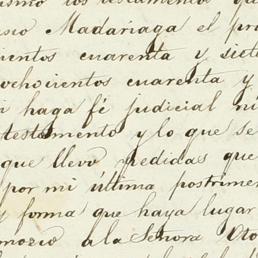 ismo los testamentos que
usio Madariaga el pri
ientos cuarenta y siete
ochocientos cuarenta y
i haga fé judicial ni
testamento y lo que se
que llevo pedidas que
por mi última postrimer
y forma que haya lugar
a la Señora Oto